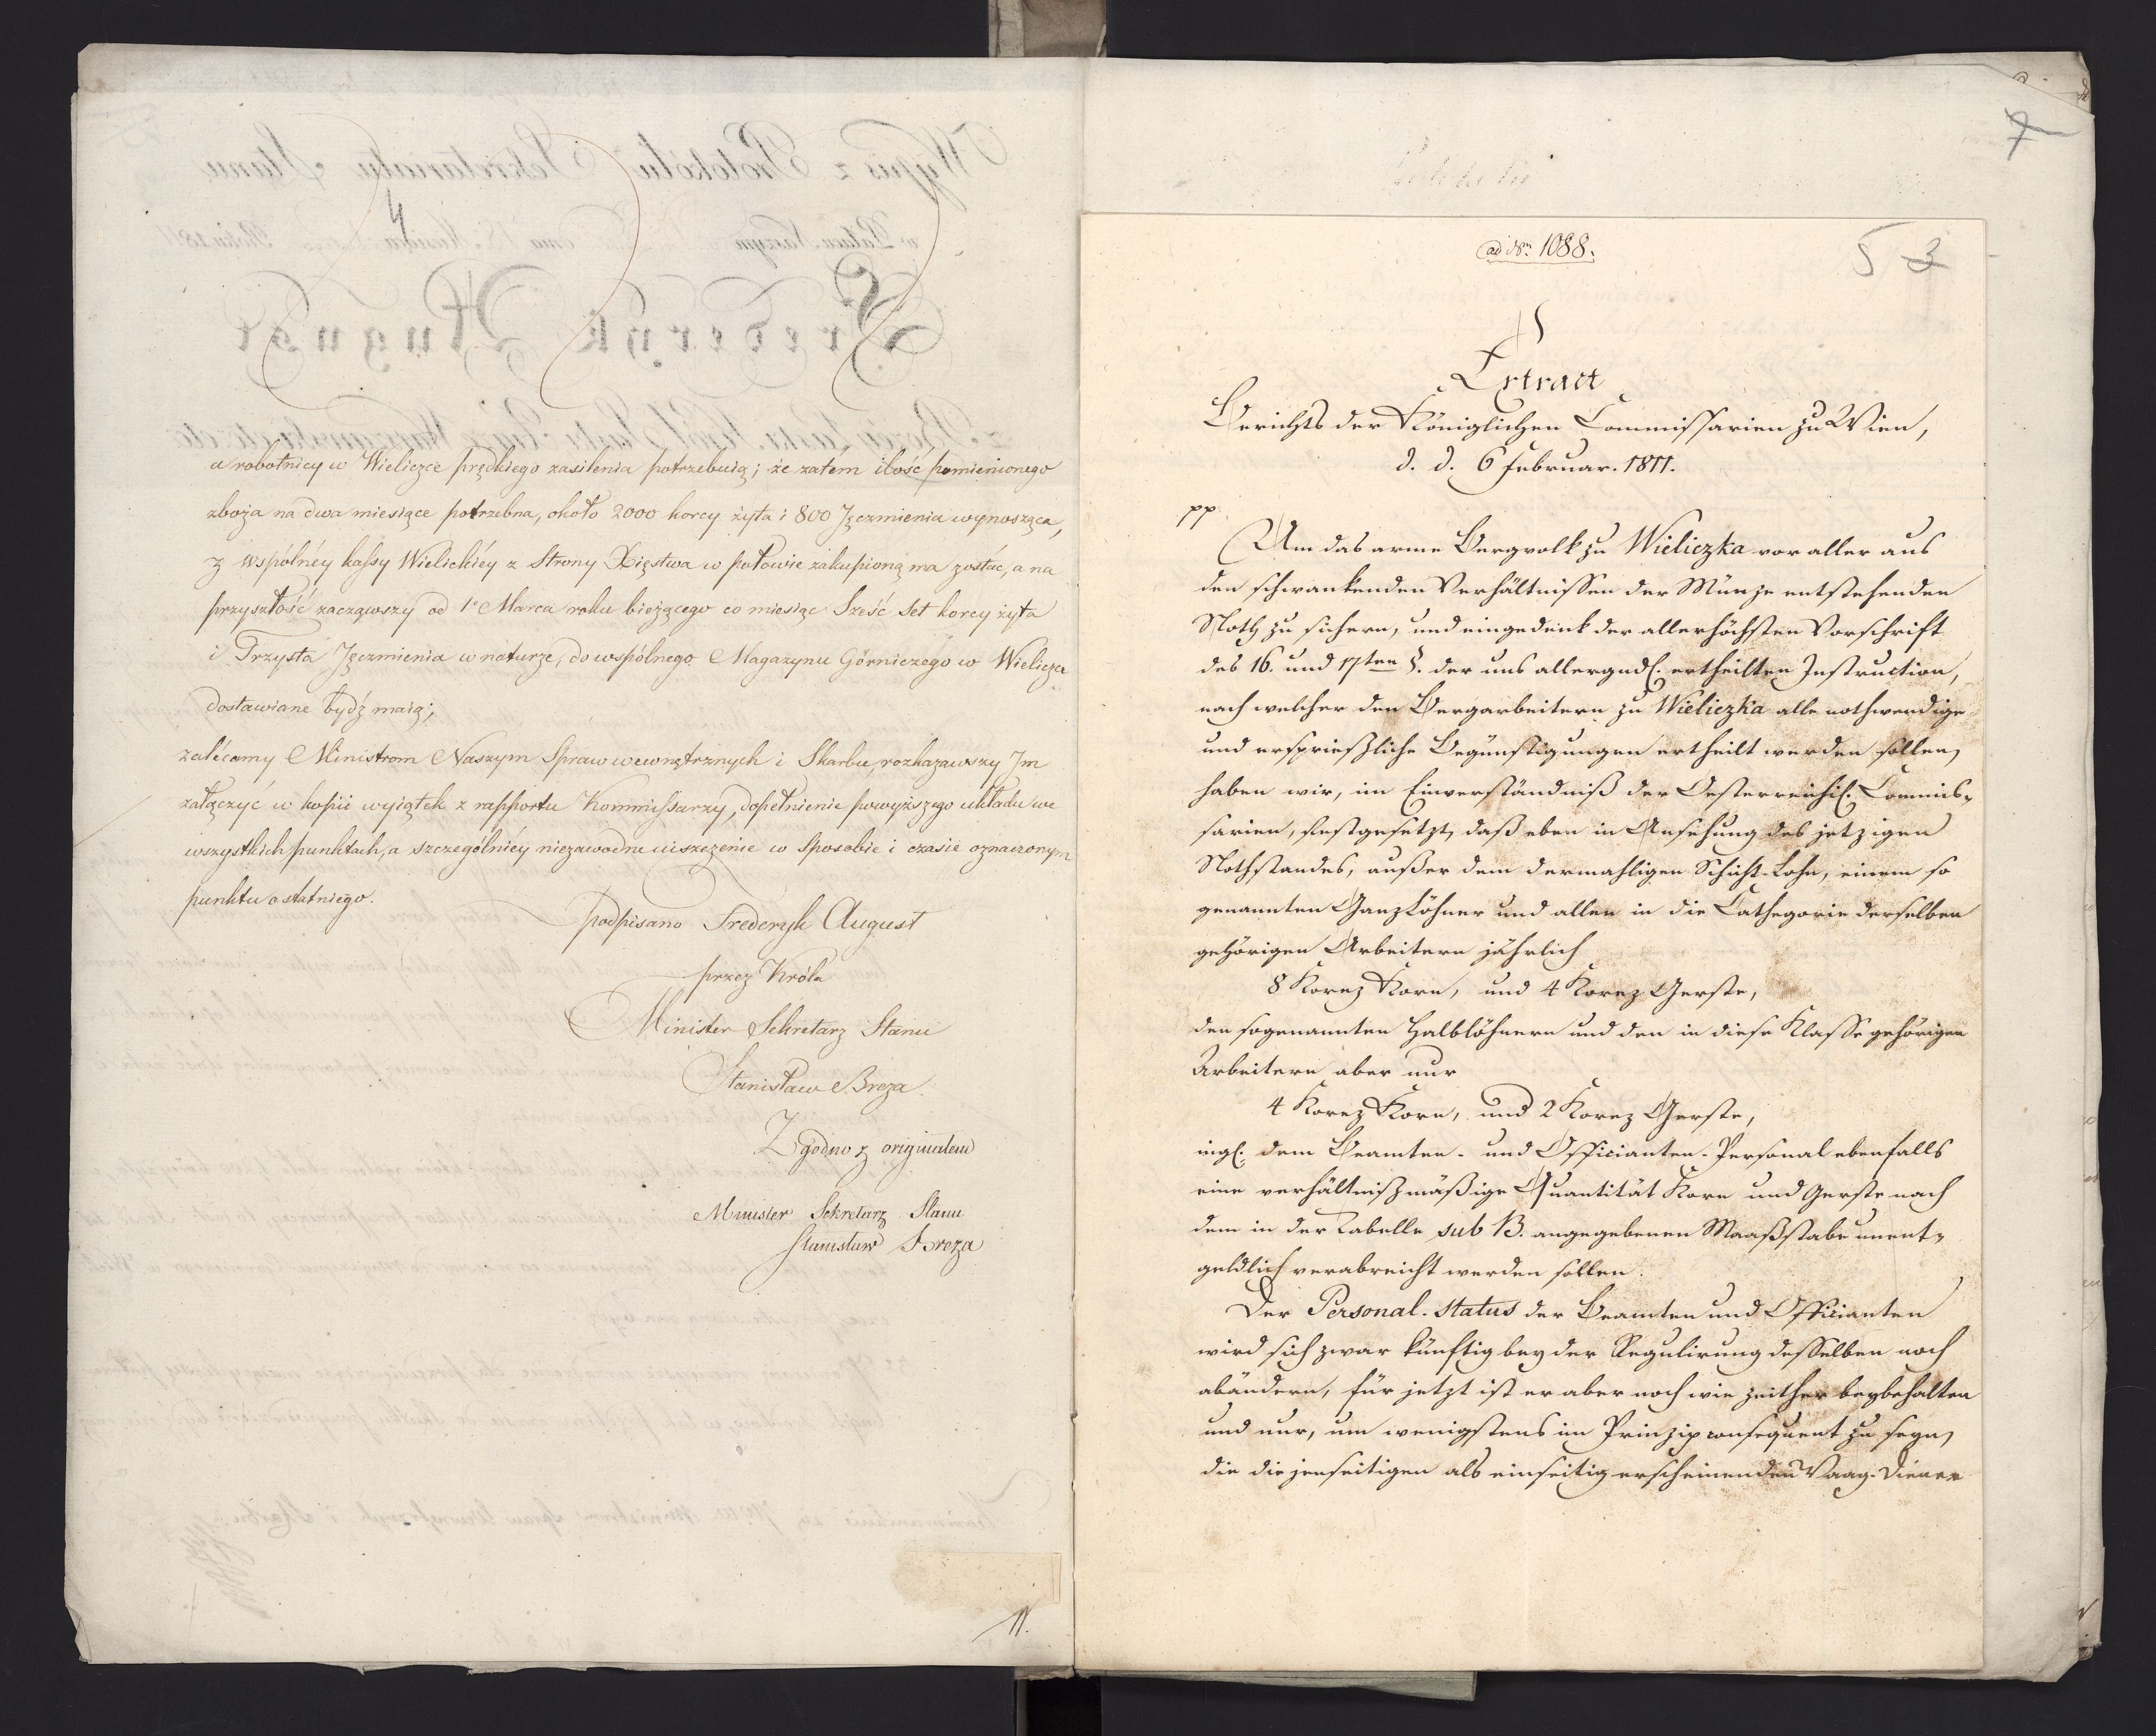 4
a robotnicy w Wieliczce prędkiego zasilenia potrzebuią; że zatém ilość pomienionego
zboża na dwa miesiące potrzebna, około 2000 korcy żyta i 800 Jęczmienia wynosząca,
z wspólnéy kassy Wielickiéy z Strony Xięstwa w połowie zakupioną ma zostać, a na
przyszłość zacząwszy od 1o Marca roku bieżącego co miesiąc Sześć Set korcy żyta
i Trzysta Jęczmienia w naturze, do wspólnego Magazynu Górniczego w Wieliczce
dostawiane bydź maią;
zalécamy Ministrom Naszym Spraw wewnętrznych i Skarbu, rozkazawszy Jm
załączyć w kopii wyiątek z rapportu Kommissarzy, dopełnienie powyższego układu we
wszystkich punktach, a szczególniéy niezawodne uiszczenie w Sposobie i czasie oznaczonym
punktu ostatniego.
podpisano Frederyk August
przez Króla
Minister Sekretarz Stanu
Stanisław Breza.
Zgodno z originałem
Minister Sekretarz Stanu
Stanisław Breza
11.
7
ad Nm 1088.
5 3
Extract
Berichts der Königlichen Commissarien zu Wien,
d. d. 6 Februar. 1811.
pp
Um das arme Bergvolk zu Wieliczka vor aller aus
den schwankenden Verhältnissen der Münze entstehenden
Noth zu sichern, und eingedenk der allerhöchsten Vorschrift
des 16. und 17ten §. der uns allergndl. ertheilten Instruction,
nach welcher den Bergarbeitern zu Wieliczka alle nothwendige
und ersprießliche Begünstigungen ertheilt werden sollen,
haben wir, im Einverständniß der Oesterreichil. Commis-
sarien, festgesetzt, daß eben in Ansehung des jetzigen
Nothstandes, außer dem dermahligen Schicht-Lohn, einem so
genannten Ganzlöhner und allen in die Cathegorie derselben
gehörigen Arbeitern jährlich
8 Korez Korn, und 4 Korez Gerste,
den sogenannten Halblöhnern und den in diese Klasse gehörigen
Arbeitern aber nur
4 Korez Korn, und 2 Korez Gerste,
ingl. dem Beamten- und Officianten-Personal ebenfalls
eine verhältnißmäßige Quantität Korn und Gerste nach
dem in der Tabelle sub B. angegebenen Maaßstabe unent-
geldlich verabreicht werden sollen.
Der Personal-Status der Beamten und Officianten
wird sich zwar künftig bey der Regulirung desselben noch
abändern, für jetzt ist er aber noch wie zeither beybehalten
und nur, um wenigstens im Prinzip consequent zu seyn,
die diejenseitigen als einseitig erscheinenden Waag-Diener